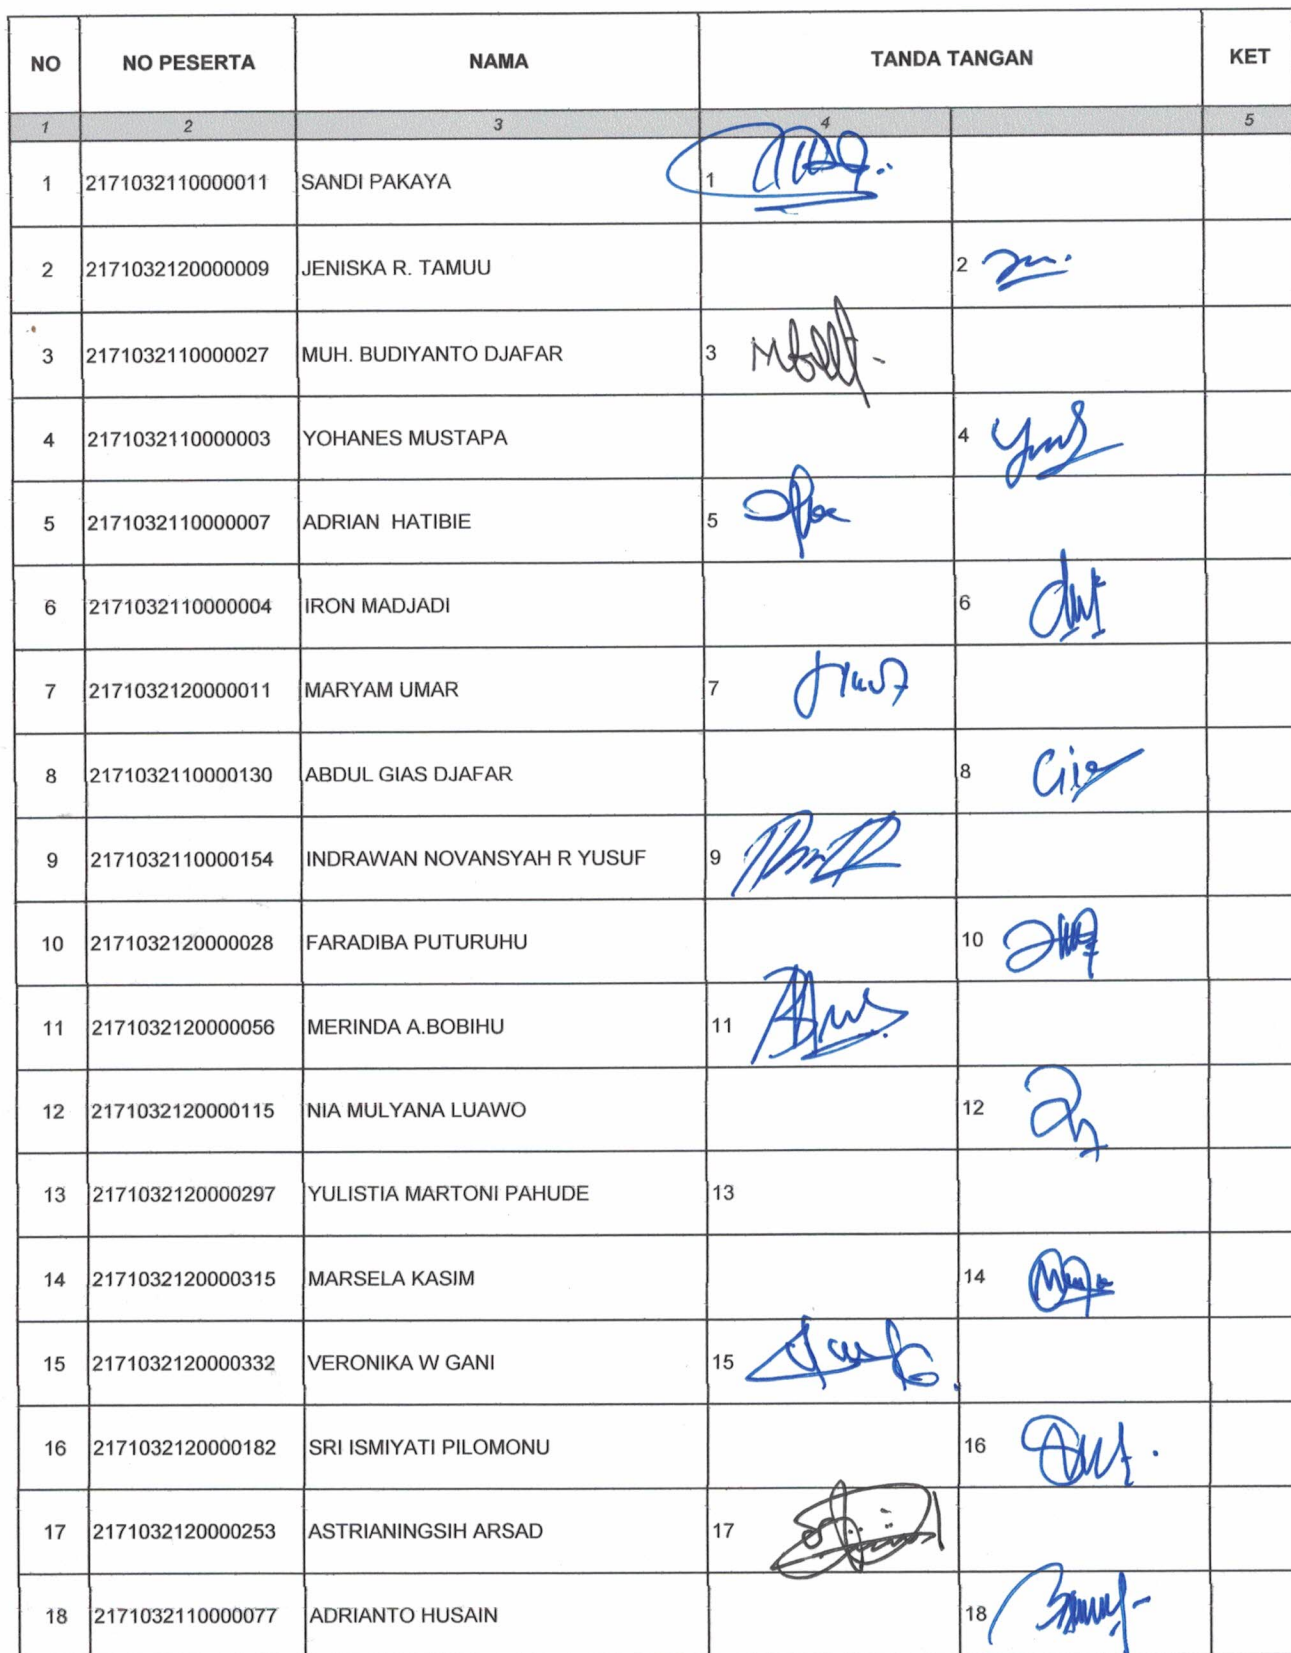 NO NO PESERTA NAMA TANDA TANGAN KET
1 2 3 4 5
1 2171032110000011 SANDI PAKAYA 1
2 2171032120000009 JENISKA R. TAMUU 2
3 2171032110000027 MUH. BUDIYANTO DJAFAR 3
4 2171032110000003 YOHANES MUSTAPA 4
5 2171032110000007 ADRIAN HATIBIE 5
6 2171032110000004 IRON MADJADI 6
7 2171032120000011 MARYAM UMAR 7
8 2171032110000130 ABDUL GIAS DJAFAR 8
9 2171032110000154 INDRAWAN NOVANSYAH R YUSUF 9
10 2171032120000028 FARADIBA PUTURUHU 10
11 2171032120000056 MERINDA A.BOBIHU 11
12 2171032120000115 NIA MULYANA LUAWO 12
13 2171032120000297 YULISTIA MARTONI PAHUDE 13
14 2171032120000315 MARSELA KASIM 14
15 2171032120000332 VERONIKA W GANI 15
16 2171032120000182 SRI ISMIYATI PILOMONU 16
17 2171032120000253 ASTRIANINGSIH ARSAD 17
18 2171032110000077 ADRIANTO HUSAIN 18